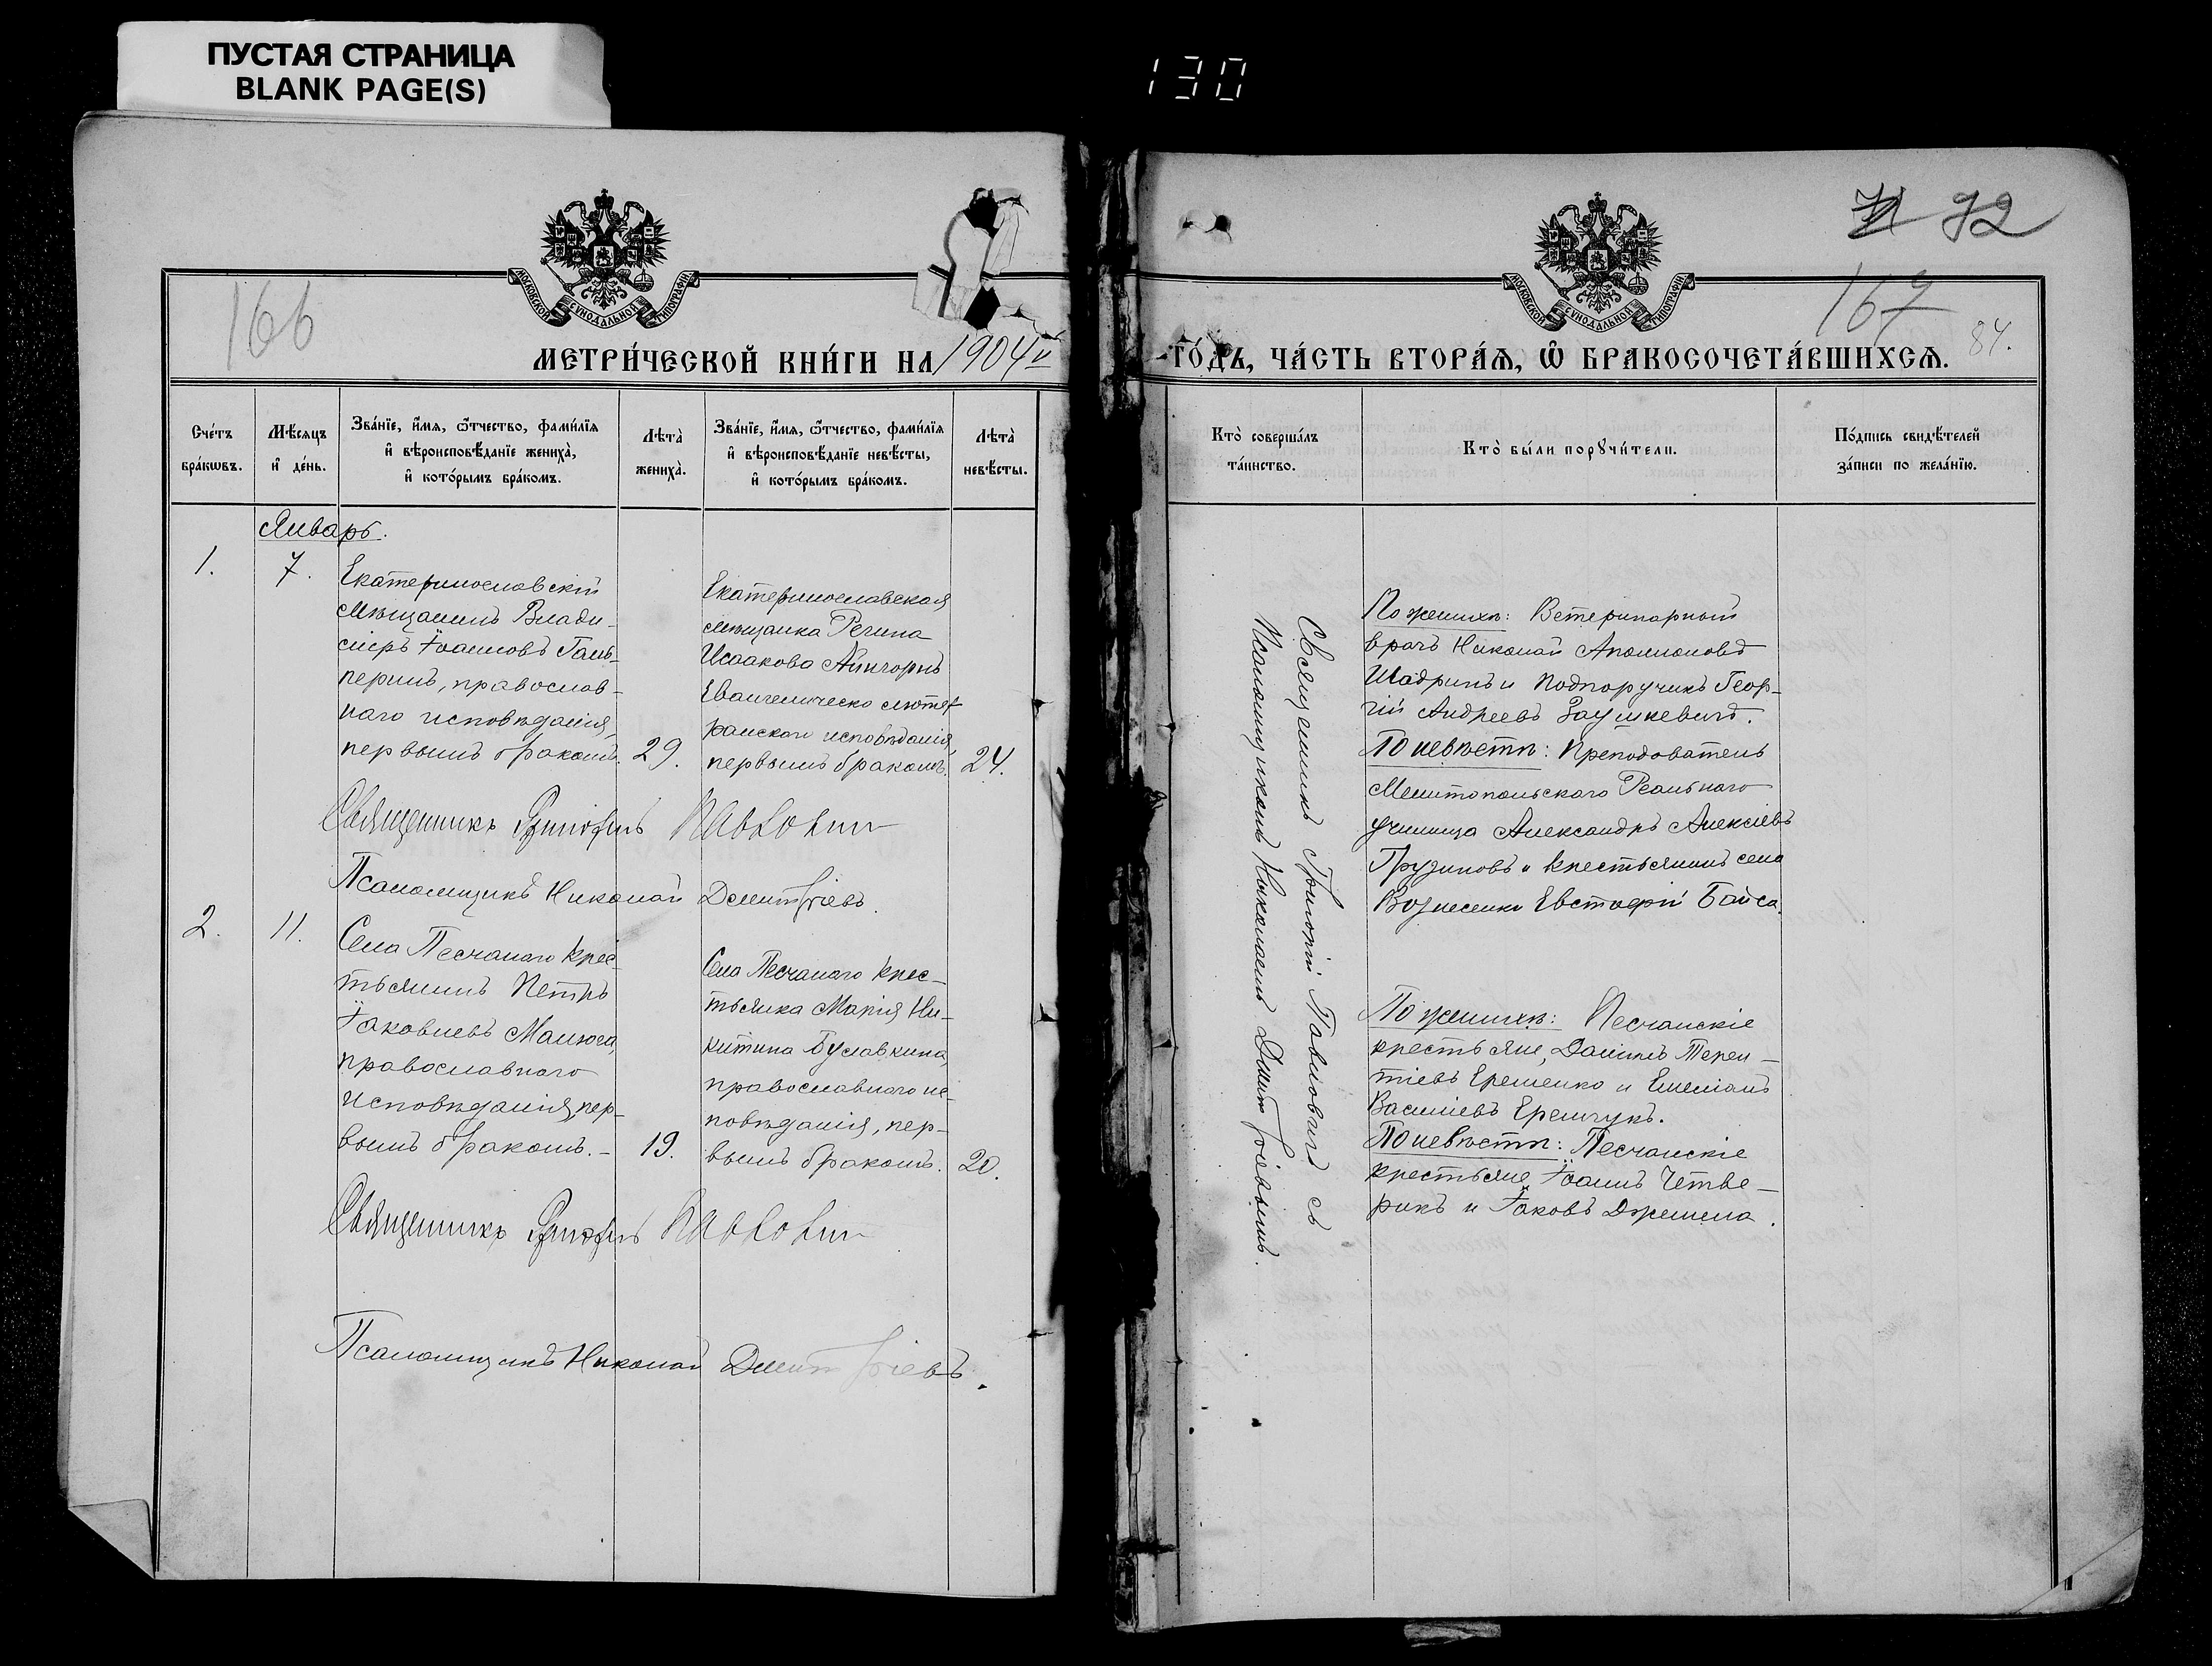 ПУСТАЯ СТРАНИЦА
BLANK PAGE(S)
130
МОСКОВСКОЙ СѴНОДАЛЬНОЙ ТИПОГРАФІИ
166
МЕТРИ́ЧЕСКОЙ КНИ́ГИ НА 1904й
Сче́тъ бра́кѡвъ.
Мѣ́сяцъ и҆ де́нь.
Зва́нїе, и҆́мя, ѻ҆́тчество, фами́лїя
и҆ вѣроисповѣ́данїе жениха̀,
и҆ кото́рымъ бра́комъ.
Лѣта̀ жениха̀.
Зва́нїе, и҆́мя, ѻ҆́тчество, фами́лїя
и҆ вѣроисповѣ́данїе невѣ́сты,
и҆ кото́рымъ бра́комъ.
Лѣта̀ невѣ́сты.
Январь.
1.
7.
Екатеринославскій
мѣщанинъ Влади-
міръ Іоанновъ Галь-
перинъ, православ-
наго исповѣданія,
первымъ бракомъ.
29.
Екатеринославская
мѣщанка Регина
Исаакова Айнгорнъ
Евангелическо лютер
ранскаго исповѣданія,
первымъ бракомъ.
24.
Священникъ Григорій Павловичъ
Псаломщикъ Николай Дмитріевъ.
2.
11.
Села Песчанаго крес-
тьянинъ Петръ
Іаковлевъ Малюга,
православнаго
исповѣданія, пер-
вымъ бракомъ. –
19.
Села Песчанаго крес-
тьянка Марія Ни-
китина Буславкина,
православнаго ис-
повѣданія, пер-
вымъ бракомъ.
20.
Священникъ Григорій Павловичъ
Псаломщикъ Николай Дмитріевъ.
МОСКОВСКОЙ СѴНОДАЛЬНОЙ ТИПОГРАФІИ
72
167
84.
ГО́ДЪ, ЧА́СТЬ ВТОРА́Я, Ѽ БРАКОСОЧЕТА́ВШИХСЯ.
Кто̀ соверша́лъ
та́инство.
Кто̀ бы́ли порꙋчи́тели.
По́дпись свидѣ́телей
за́писи по жела́нїю.
Священникъ Григорій Павловичъ съ
Псаломщикомъ Николаемъ Дмитріевымъ.
По женихѣ: Ветеринарный
врачъ Николай Аполлоновъ
Шадринъ и Подпоручикъ Геор-
гій Андреевъ Заушкевичъ.
По невѣстѣ: Преподователь
Мелитопольскаго Реальнаго
училища Александръ Алексѣевъ
Грузиновъ и крестьянинъ села
Вознесенки Евстафій Байса.
По женихѣ: Песчанскіе
крестьяне, Даніилъ Терен-
тіевъ Еременко и Емеліанъ
Василіевъ Еремчукъ.
По невѣстѣ: Песчанскіе
крестьяне Іоаннъ Четве-
рикъ и Іаковъ Джемела.